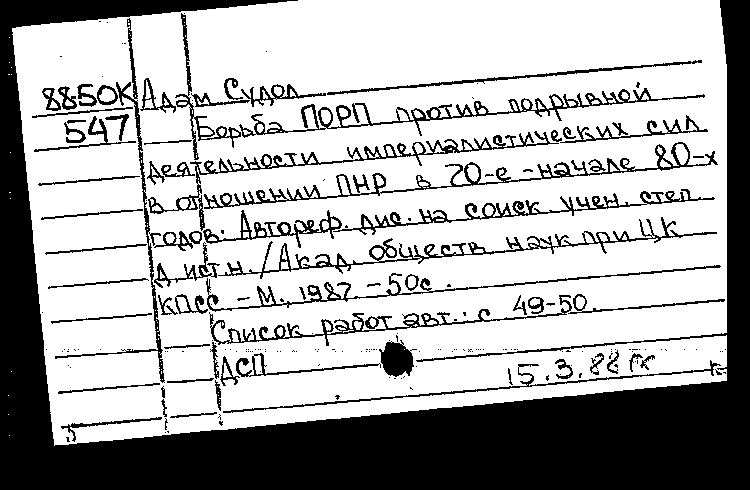 88-50К Адам Судол
547 Борьба ПОРП против подрывной
деятельности империалистических сил
в отношении ПНР в 70-е - начале 80-х
годов: Автореф. дис. на соиск учен. степ
д. ист. н. / Акад. обществ наук при ЦК
КПСС - М., 1987. - 50с.
Список работ авт.: с 49-50.
ДСП
15.3.88